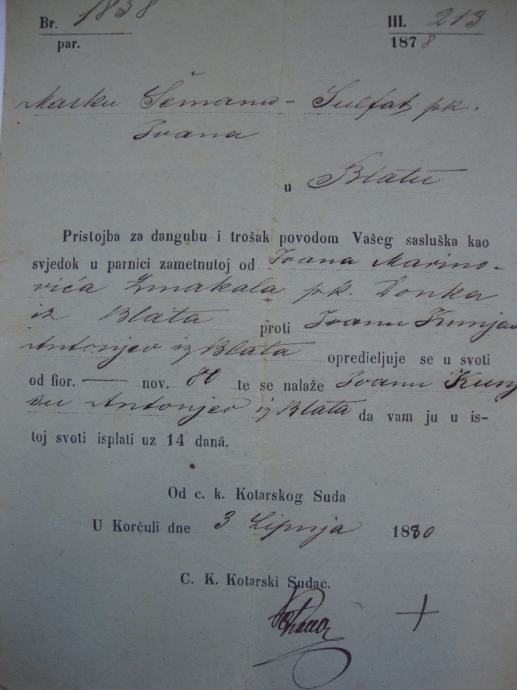 Br. 1838
III. 213
par.
1878
Marku Šemanu - Sulfat pk.
Ivana
u Blatu
Pristojba za dangubu i trošak povodom Vašeg sasluška kao
svjedok u parnici zametnutoj od Ivana Marino-
vića Zmakala pk. Donka
iz Blata proti Ivanu Kunjas
Antonjev iz Blata opredieljuje se u svoti
od fior. — nov. 80 te se nalaže Ivanu
Antonjev iz Blata da vam ju u is-
toj svoti isplati uz 14 danâ.
Od c. k. Kotarskog Suda
U Korčuli dne 3 Lipnja 1880
C. K. Kotarski Sudac.